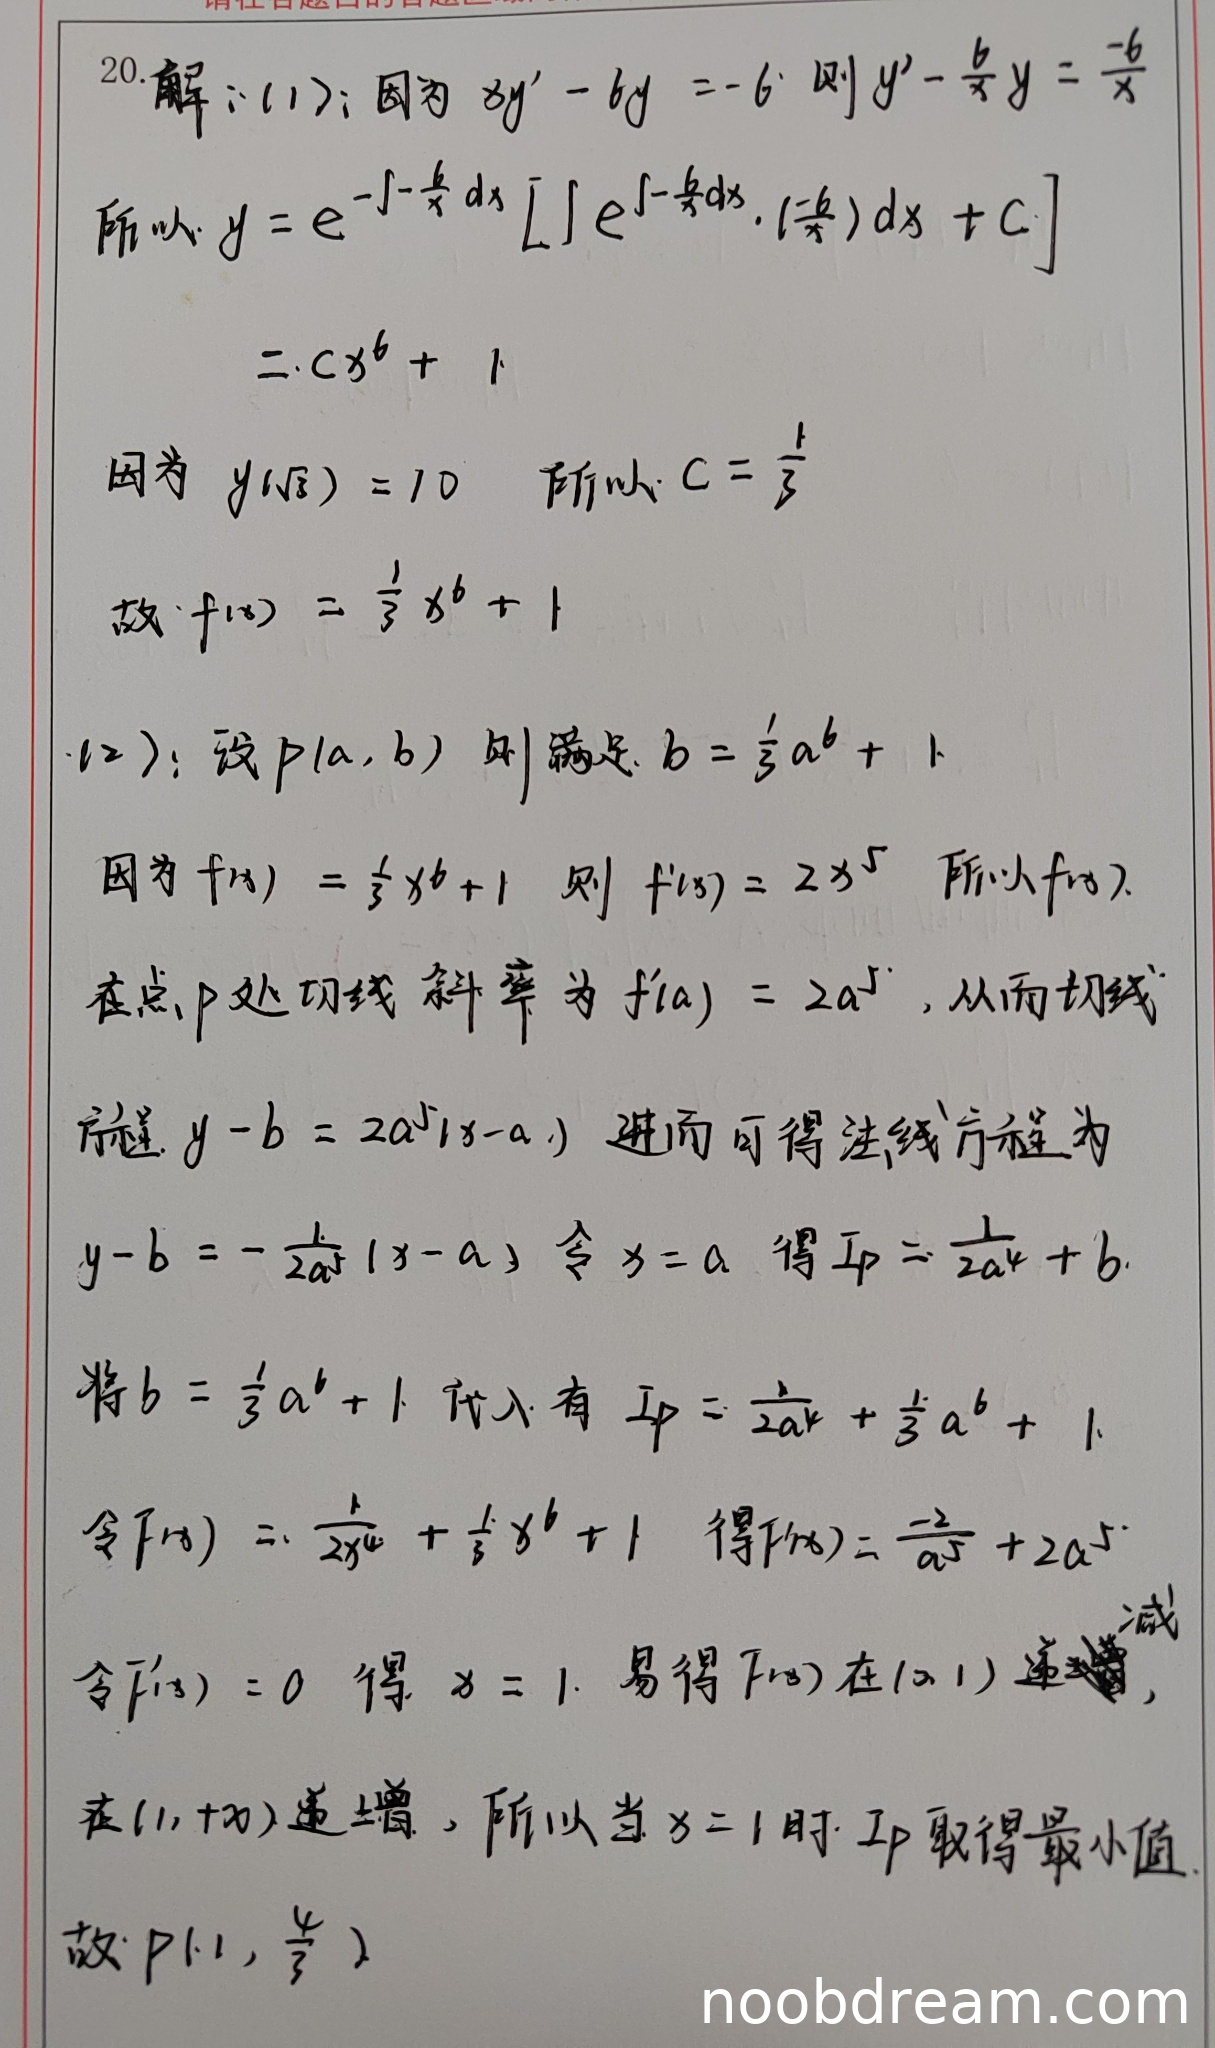 20. 解:(1):因为 xy' - 6y = -6 则 y' - \frac{6}{x} y = \frac{-6}{x}
所以 y = e^{-∫-\frac{6}{x} dx} [∫ e^{∫-\frac{6}{x}dx} · (\frac{-6}{x}) dx + C]
= Cx^6 + 1
因为 y(√3) = 10 所以 C = \frac{1}{3}
故 f(x) = \frac{1}{3} x^6 + 1
(2): 设P(a, b) 则满足 b = \frac{1}{3} a^6 + 1
因为 f(x) = \frac{1}{3} x^6 + 1 则 f'(x) = 2x^5 所以 f(x)
在点P处切线斜率为 f'(a) = 2a^5 , 从而切线
方程 y - b = 2a^5 (x - a) 进而可得法线方程为
y - b = - \frac{1}{2a^5} (x - a) 令 x = a 得 I_P = \frac{1}{2a^4} + b
将 b = \frac{1}{3} a^6 + 1 代入有 I_P = \frac{1}{2a^4} + \frac{1}{3} a^6 + 1
令F(x) = \frac{1}{2x^4} + \frac{1}{3} x^6 + 1 得F'(x) = \frac{-2}{a^5} + 2a^5
令F'(x) = 0 得 x = 1 易得F(x)在(0, 1)递减,
在(1, +∞)递增, 所以当 x = 1时 I_P 取得最小值
故 P(1, \frac{4}{3})
noobdream.com